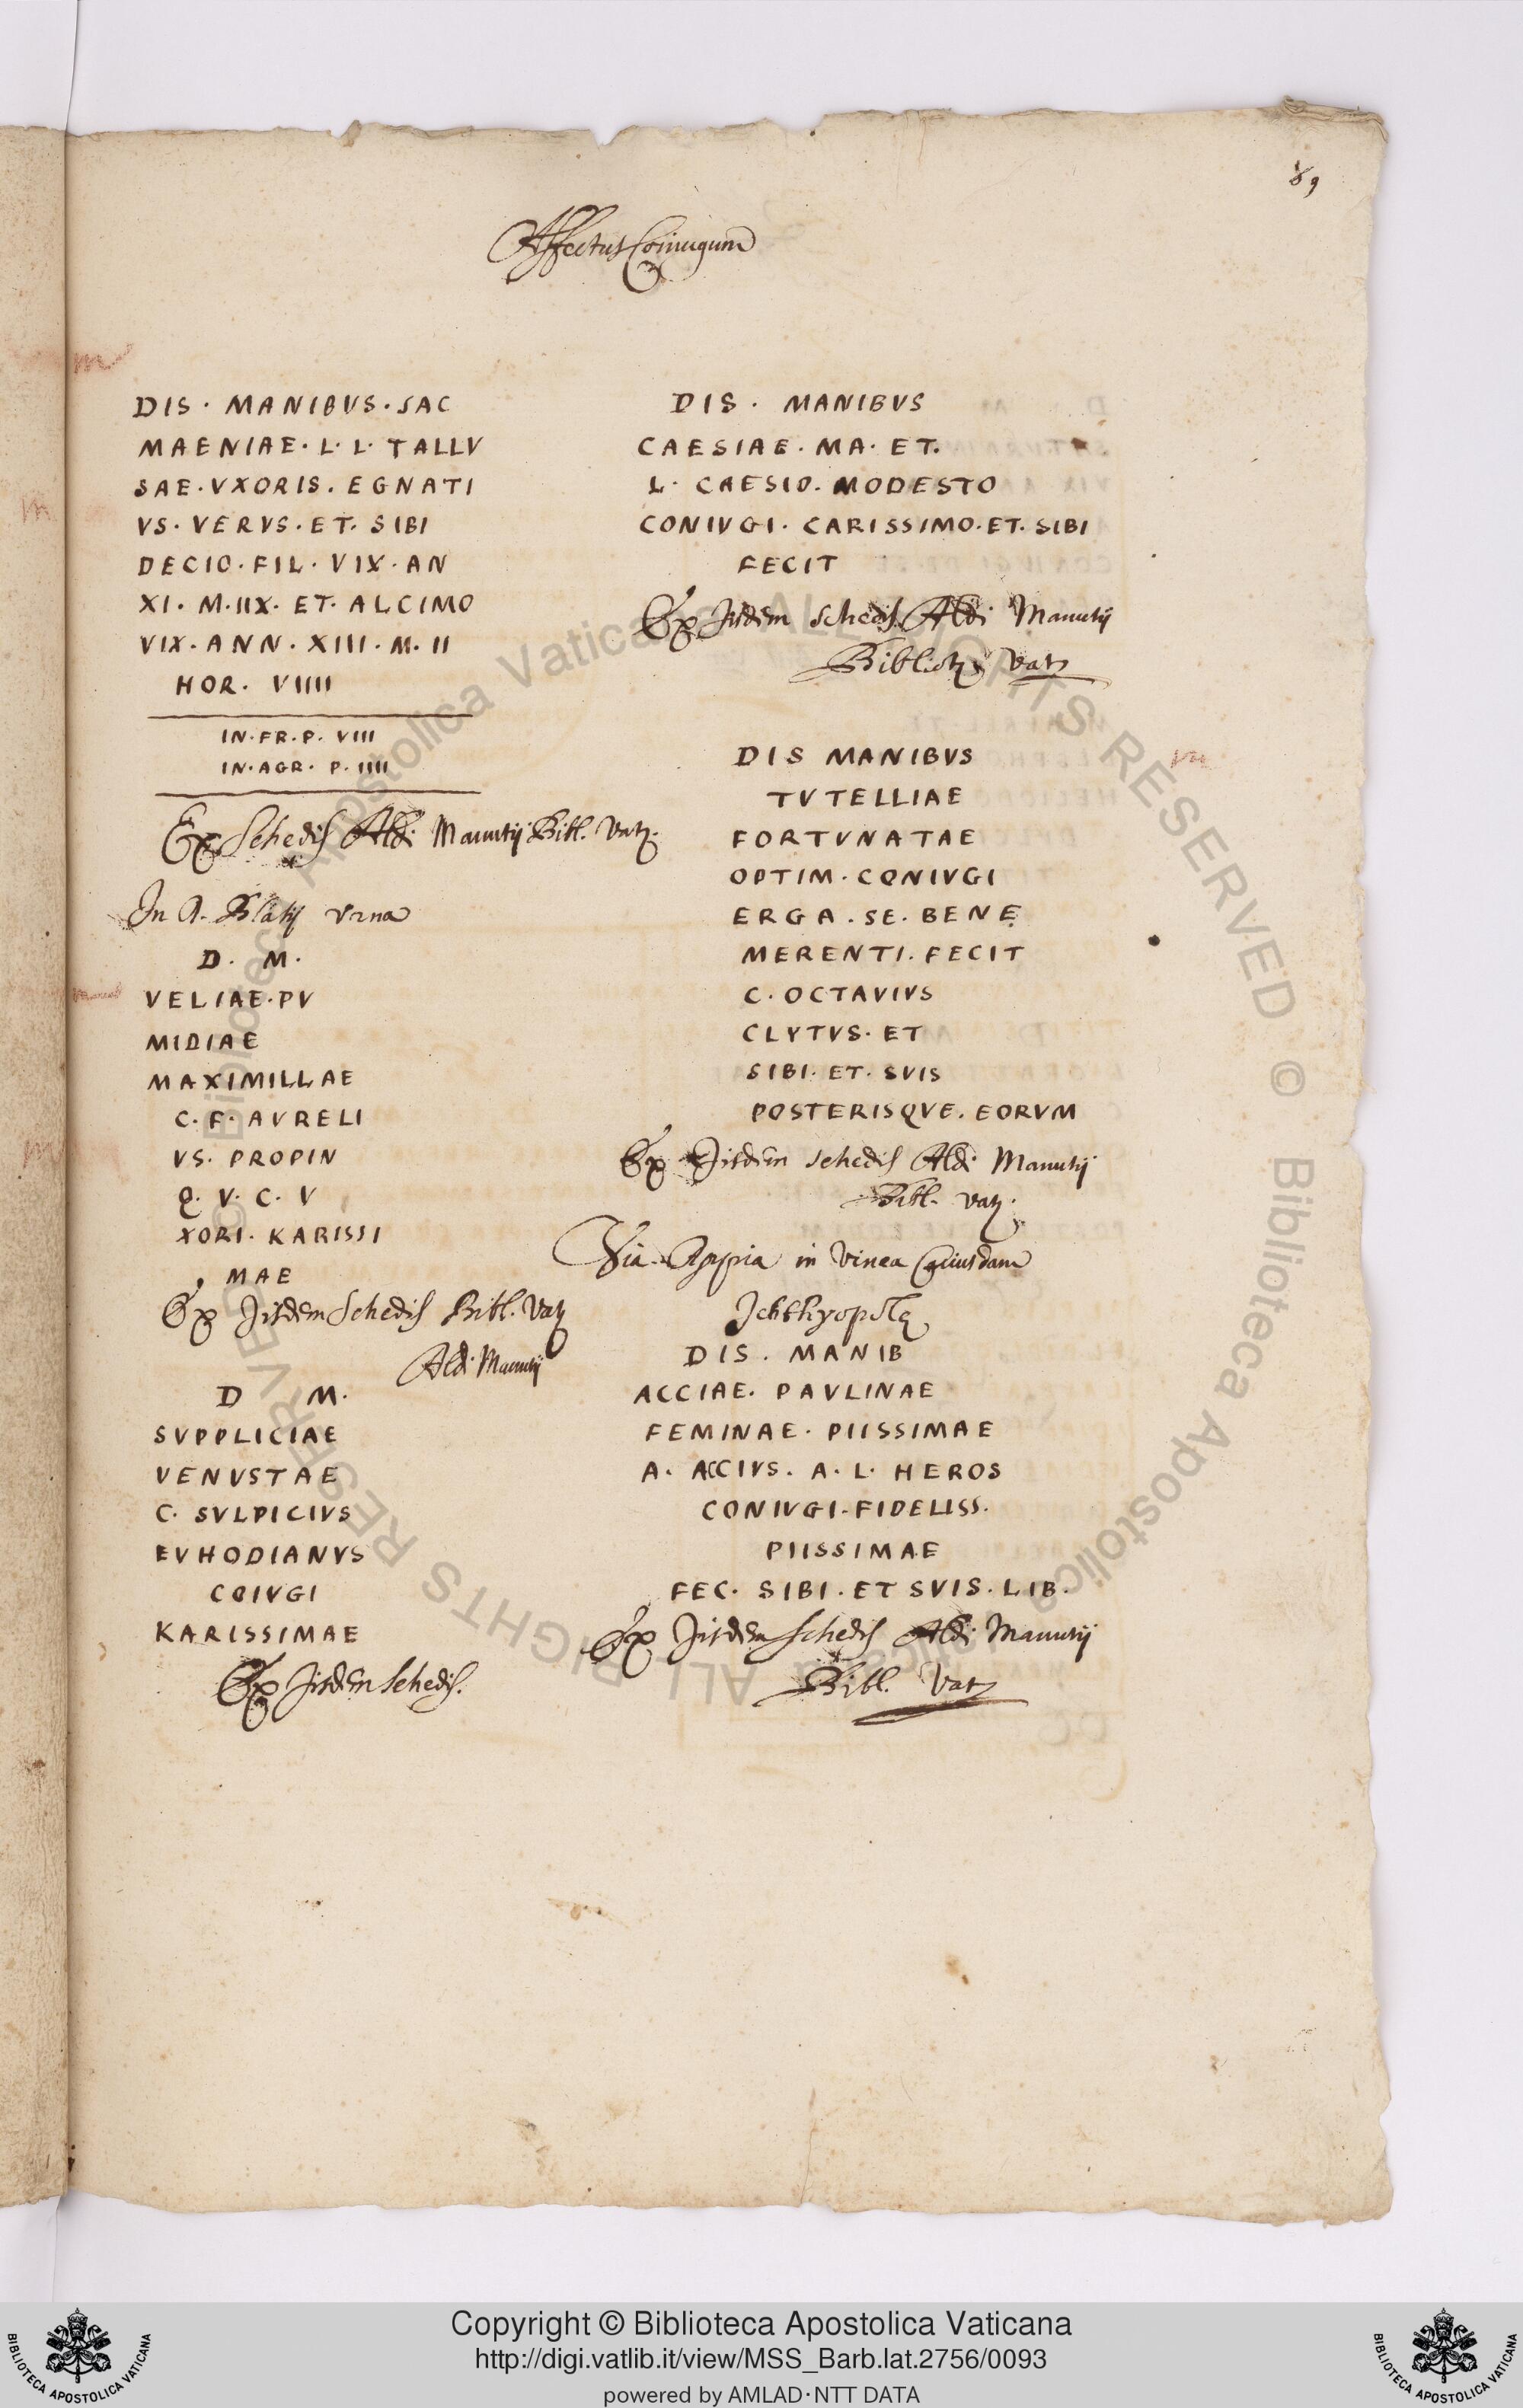 89
Affectus Coniugum
DIS · MANIBVS · SAC
MAENIAE · L · L · TALLV
SAE · VXORIS · EGNATI
VS · VERVS · ET · SIBI
DECIO · FIL · VIX · AN
XI · M · IIX · ET · ALCIMO
VIX · ANN · XIII · M · II
HOR · VIIII
IN · FR · P · VIII
IN · AGR · P · IIII
Ex Schedis Aldi Manutij Bibl. Vat.
In A. Blatij vrna
D · M ·
VELIAE · PV
MIDIAE
MAXIMILLAE
C · F · AVRELI
VS · PROPIN
Q · V · C · V
XORI · KARISSI
MAE
Ex Jisdem Schedis Bibl. Vat
Aldi Manutij
D M ·
SVPPLICIAE
VENVSTAE
C · SVLPICIVS
EVHODIANVS
COIVGI
KARISSIMAE
Ex Jisdem Schedis.
DIS · MANIBVS
CAESIAE · MA · ET ·
L · CAESIO · MODESTO
CONIVGI · CARISSIMO · ET · SIBI
FECIT
Ex Jisdem Schedis Aldi Manutij
Vat
DIS MANIBVS
TVTELLIAE
FORTVNATAE
OPTIM · CONIVGI
ERGA · SE · BENE
MERENTI · FECIT
C · OCTAVIVS
CLYTVS · ET
SIBI · ET · SVIS
POSTERISQVE · EORVM
Ex Jisdem Schedis Aldi Manutij
Bibl. Vat.
Via Appia in Vinea Cuiusdam
Ichthyopolę
DIS · MANIB
ACCIAE · PAVLINAE
FEMINAE · PIISSIMAE
A · ACCIVS · A · L · HEROS
CONIVGI · FIDELISS ·
PIISSIMAE
FEC · SIBI · ET SVIS · LIB ·
Ex Jisdem Schedis Aldi Manutij
Bibl. Vat
© Biblioteca Apostolica Vaticana ALL RIGHTS RESERVED © Biblioteca Apostolica Vaticana ALL RIGHTS RESERVED
Copyright © Biblioteca Apostolica Vaticana
http://digi.vatlib.it/view/MSS_Barb.lat.2756/0093
powered by AMLAD·NTT DATA
BIBLIOTECA APOSTOLICA VATICANA
BIBLIOTECA APOSTOLICA VATICANA